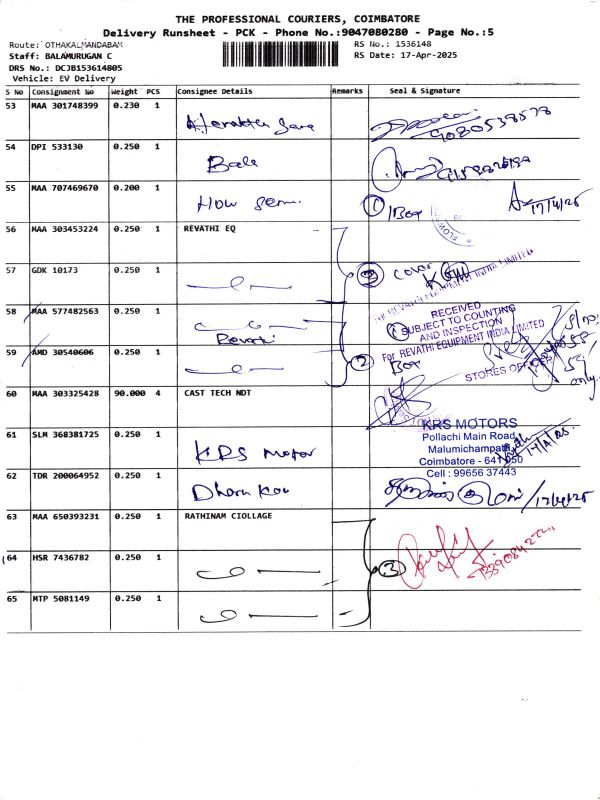 THE PROFESSIONAL COURIERS, COIMBATORE
Delivery Runsheet - PCK - Phone No.:9047080280 - Page No.:5
Route: OTHAKALMANDABAM
RS No.: 1536148
Staff: BALAMURUGAN C
RS Date: 17-Apr-2025
DRS No.: DCJB153614805
Vehicle: EV Delivery
S No Consignment No Weight PCS Consignee Details Remarks Seal & Signature
53 MAA 301748399 0.230 1
54 DPI 533130 0.250 1 Bale
55 MAA 707469670 0.200 1 How
1 /Box 17/4/25
56 MAA 303453224 0.250 1 REVATHI EQ
FLOWS
57 GDK 10173 0.250 1 2 cover
REVATHI EQUIPMENT INDIA LIMITED
58 MAA 577482563 0.250 1 Revathi
RECEIVED
SUBJECT TO COUNTING
AND INSPECTION
For REVATHI EQUIPMENT INDIA LIMITED
STORES OFFICER
S/no:
58
59
only.
59 AMD 30540606 0.250 1 2 Box
60 MAA 303325428 90.000 4 CAST TECH NDT
61 SLM 368381725 0.250 1 KRS Motor
KRS MOTORS
Pollachi Main Road
Malumichampatti
Coimbatore - 641 050
Cell : 99656 37443
17/4/25.
62 TDR 200064952 0.250 1
17/4/25
63 MAA 650393231 0.250 1 RATHINAM CIOLLAGE
64 HSR 7436782 0.250 1 3
65 MTP 5081149 0.250 1